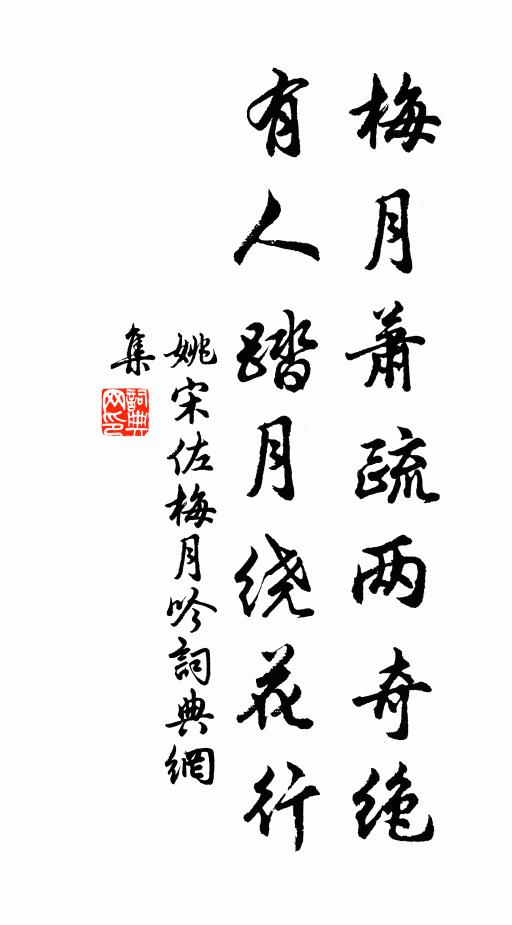 梅月萧疏两奇绝
有人踏月绕花行
姚宋佐梅月吟詞典網
集
詞典
网印